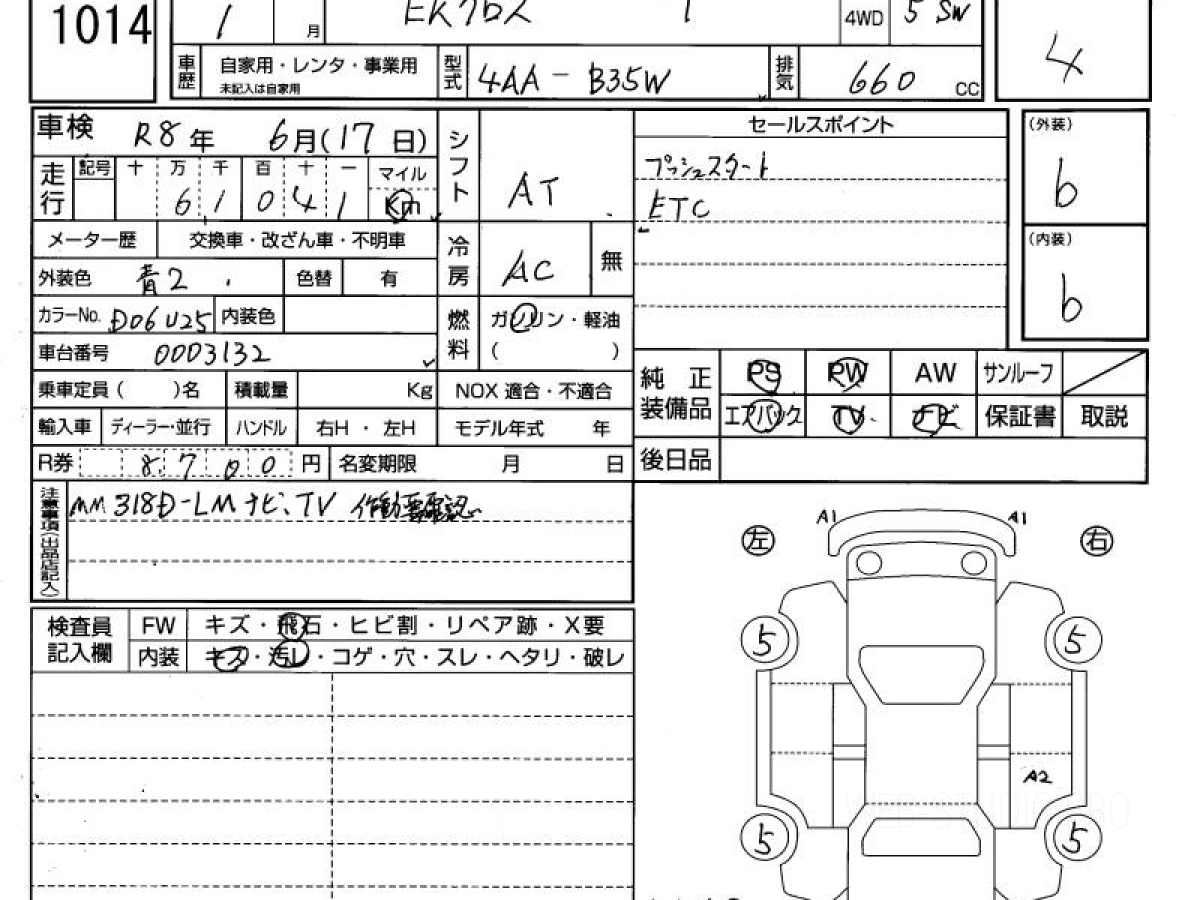 1014
1 月
EKクロス T
4WD 5 SW
4
車歴 自家用・レンタ・事業用
未記入は自家用
型式 4AA - B35W
排気 660 CC
車検 R8年 6月(17日)
走行 記号 十 万 千 百 十 一 マイル
6 1 0 4 1 Km
シフト AT
メーター歴 交換車・改ざん車・不明車
外装色 青2
色替 有
冷房 AC 無
カラーNo. D06U25 内装色
燃料 ガソリン・軽油
( )
車台番号 0003132
乗車定員 ( )名 積載量 Kg NOX 適合・不適合
輸入車 ディーラー・並行 ハンドル 右H ・ 左H モデル年式 年
R券 8,700 円 名変期限 月 日
セールスポイント
プッシュスタート
ETC
(外装)
b
(内装)
b
純正装備品 PS PW AW サンルーフ
エアバック TV ナビ 保証書 取説
後日品
注意事項(出品店記入)
MM318D-LM ナビ、TV 作動要確認
検査員記入欄 FW キズ・飛石・ヒビ割・リペア跡・X要
内装 キズ・汚レ・コゲ・穴・スレ・ヘタリ・破レ
左 A1 A1 右
5 5
A2
5 5